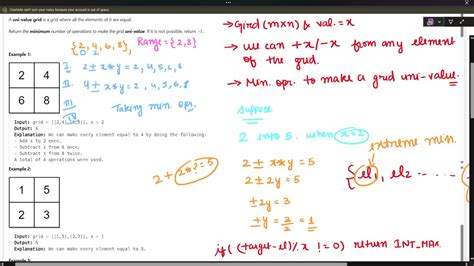 OneNote can't sync your notes because your account is out of space.
A uni-value grid is a grid where all the elements of it are equal.
Return the minimum number of operations to make the grid uni-value. If it is not possible, return -1.
Example 1:
2 4
6 8
Input: grid = [[2,4],[6,8]], x = 2
Output: 4
Explanation: We can make every element equal to 4 by doing the following:
- Add x to 2 once.
- Subtract x from 6 once.
- Subtract x from 8 twice.
A total of 4 operations were used.
Example 2:
1 5
2 3
Input: grid = [[1,5],[2,3]], x = 1
Output: 5
Explanation: We can make every element equal to 3.
{2, 4, 6, 8}
Range = {2, 8}
I. 2 ± x*y = 2, 4, 6, 8
II. 4 ± x*y = 2, 4, 6, 8
III
Taking min opr.
2 + 2*? = 5
→ Gird (m×n) & val. = x
→ We can +x/-x from any element
of the grid.
→ Min. opr. to make a grid uni-value.
Suppose
2 into 5. when x=2
2 ± x*y = 5
2 ± 2y = 5
± 2y = 3
± y = 3/2 = 1
extreme min.
{el1, el2 ----
if( (target-el)% x != 0) return INT_MAX